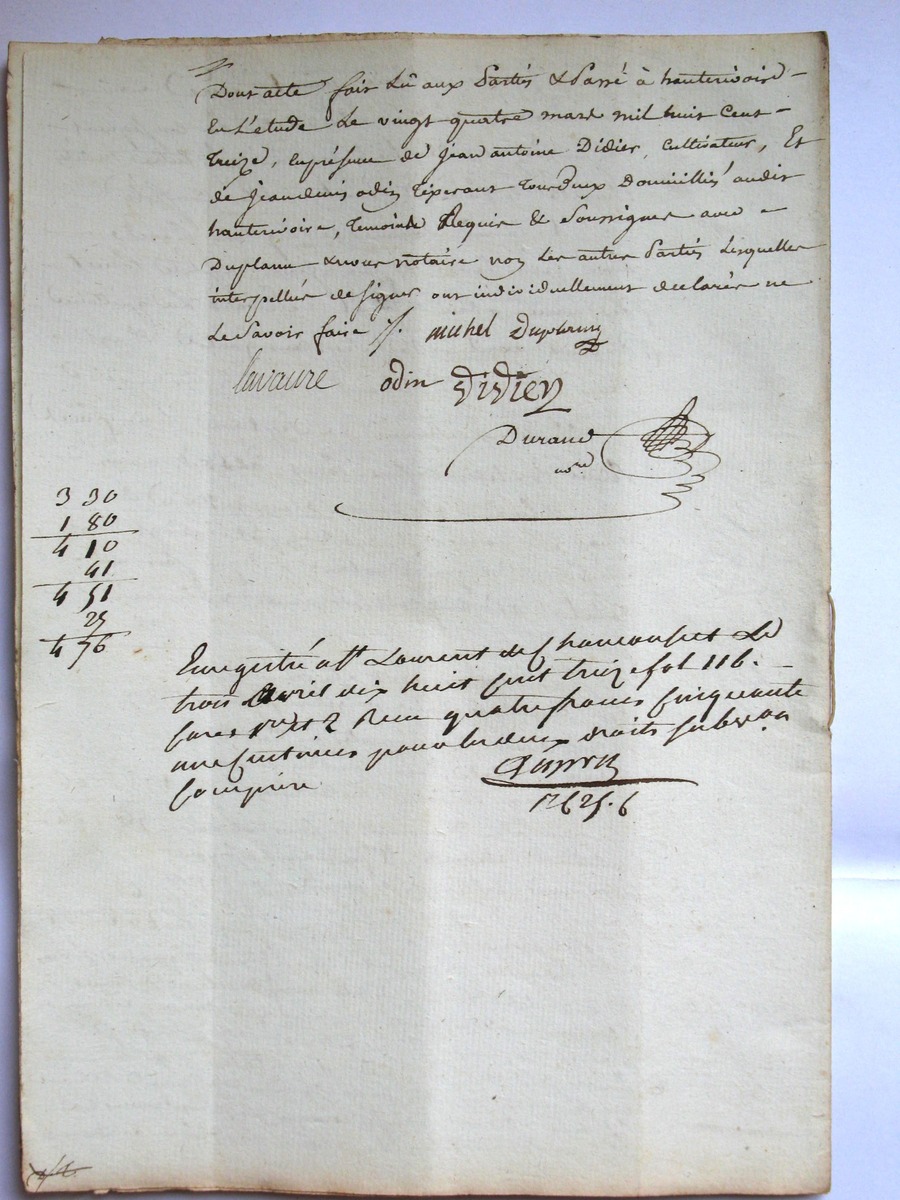 Dont acte fait lû aux Parties & Passé à hauterivoire
En L'etude Le vingt quatre mars mil huit Cent
Treize, En présence de Jean antoine Didier, Cultivateur, Et
de Jean denis odin Tisserant Tous deux Domiciliés audit
hauterivoire, Temoins Requis & Soussignés avec
Duplanu & nous notaire non Les autres Parties Lesquelles
interpellées de signer ont individuellement declarés ne
Le Savoir faire /.
michel
Lavaure odin didier
Durand
no.re
3 30
1 80
4 10
41
4 51
25
4 76
Enregistré a St Laurent de Chamousset Le
trois avril dix huit cent treize fol 116.
cases 1re et 2 Recu quatre francs cinquante
un centimes pour les deux droits subvon
comprise